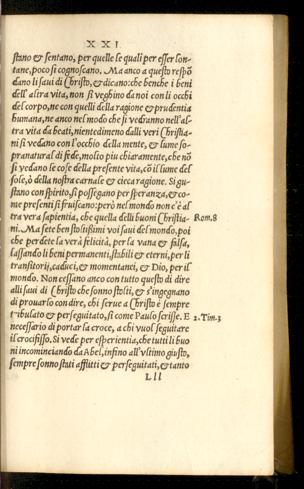 XXI.
stano & sentano, per quelle se quali per esser lon-
tane, poco si cognoscano. Ma anco a questo respō
dano li saui di Christo, & dicano: che benche i beni
dell'altra vita, non si veghino da noi con li occhi
del corpo, ne con quelli della ragione & prudentia
humana, ne anco nel modo che si vedranno nell'al-
tra vita da beati, nientedimeno dalli veri Christia-
ni si vedano con l'occhio della mente, & lume so-
pranatural di fede, molto piu chiaramente, che nō
si vedano le cose della presente vita, cō il lume del
sole, ò della nostra carnale & cieca ragione. Si gu-
stano con spirito, si possegano per speranza, & co-
me presenti si fruiscano: però nel mondo non c'è al
tra vera sapientia, che quella delli buoni Christia- Rom. 8
ni. Ma sete ben stoltißimi voi saui del mondo, poi
che perdete la verà felicità, per la vana & falsa,
lassando li beni permanenti, stabili & eterni, per li
transitorij, caduci, & momentanei, & Dio, per il
mondo. Non cessano anco con tutto questo di dire
alli saui di Christo che sonno stolti, & s'ingegnano
di prouarlo con dire, chi serue a Christo è sempre
tribulato & perseguitato, si come Paulo scrisse. E 2. Tim. 3
necessario di portar la croce, a chi vuol seguitare
il crocifisso. Si vede per esperientia, che tutti li buo
ni incominciando da Abel, infino all'vltimo giusto,
sempre sonno stati afflitti & perseguitati, & tanto
Lll